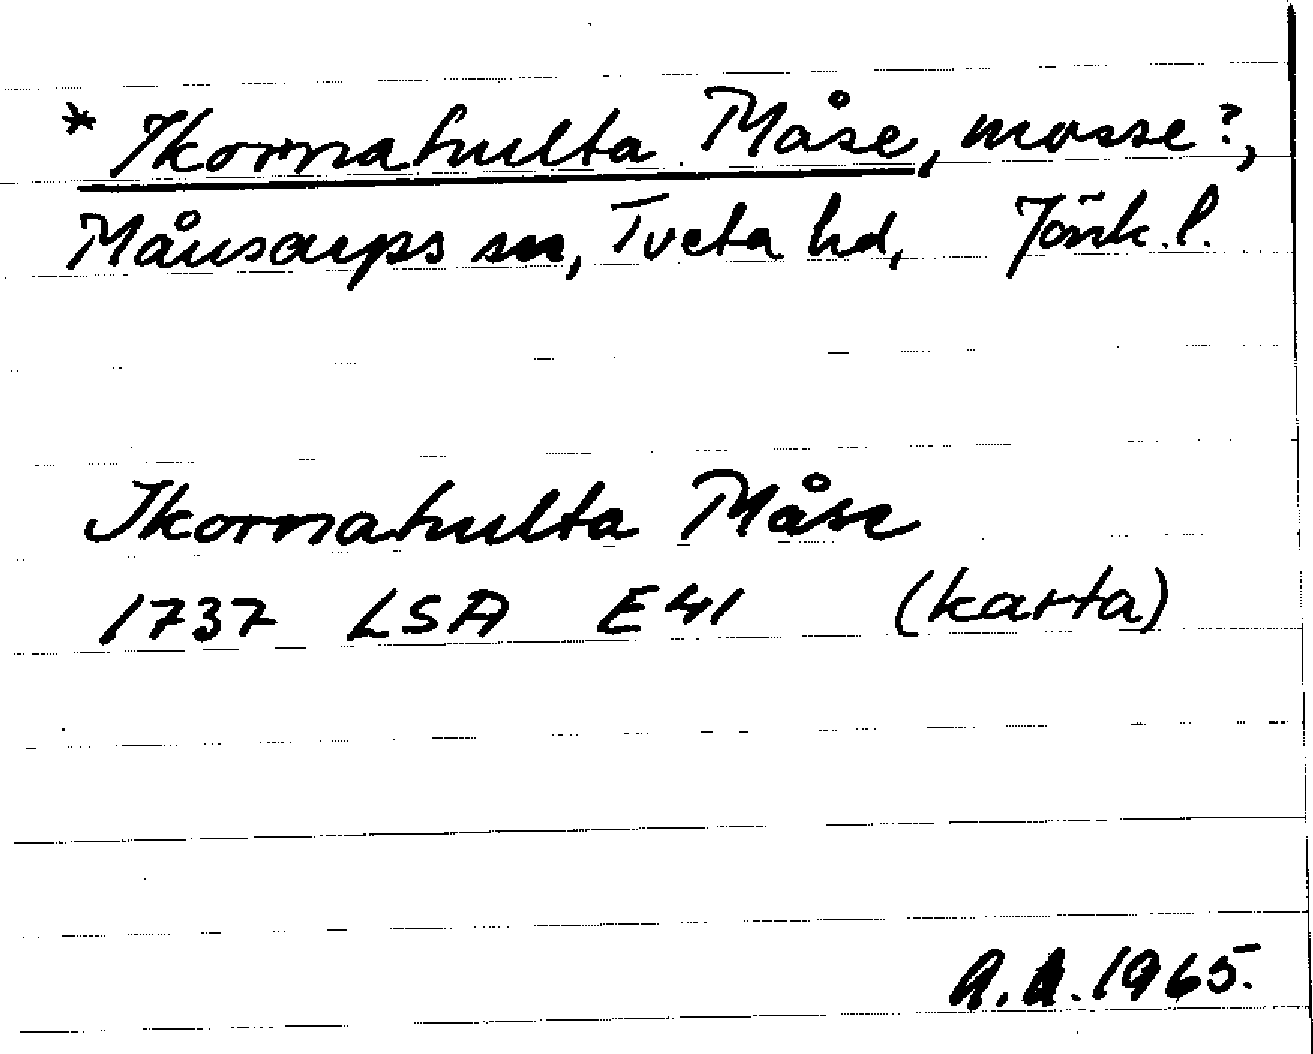 * Ikornahulta Måse, mosse?,
Månsarps sn, Tveta hd, Jönk. l.
Ikornahulta Måse
1737 LSA E41 (karta)
A.A. 1965.